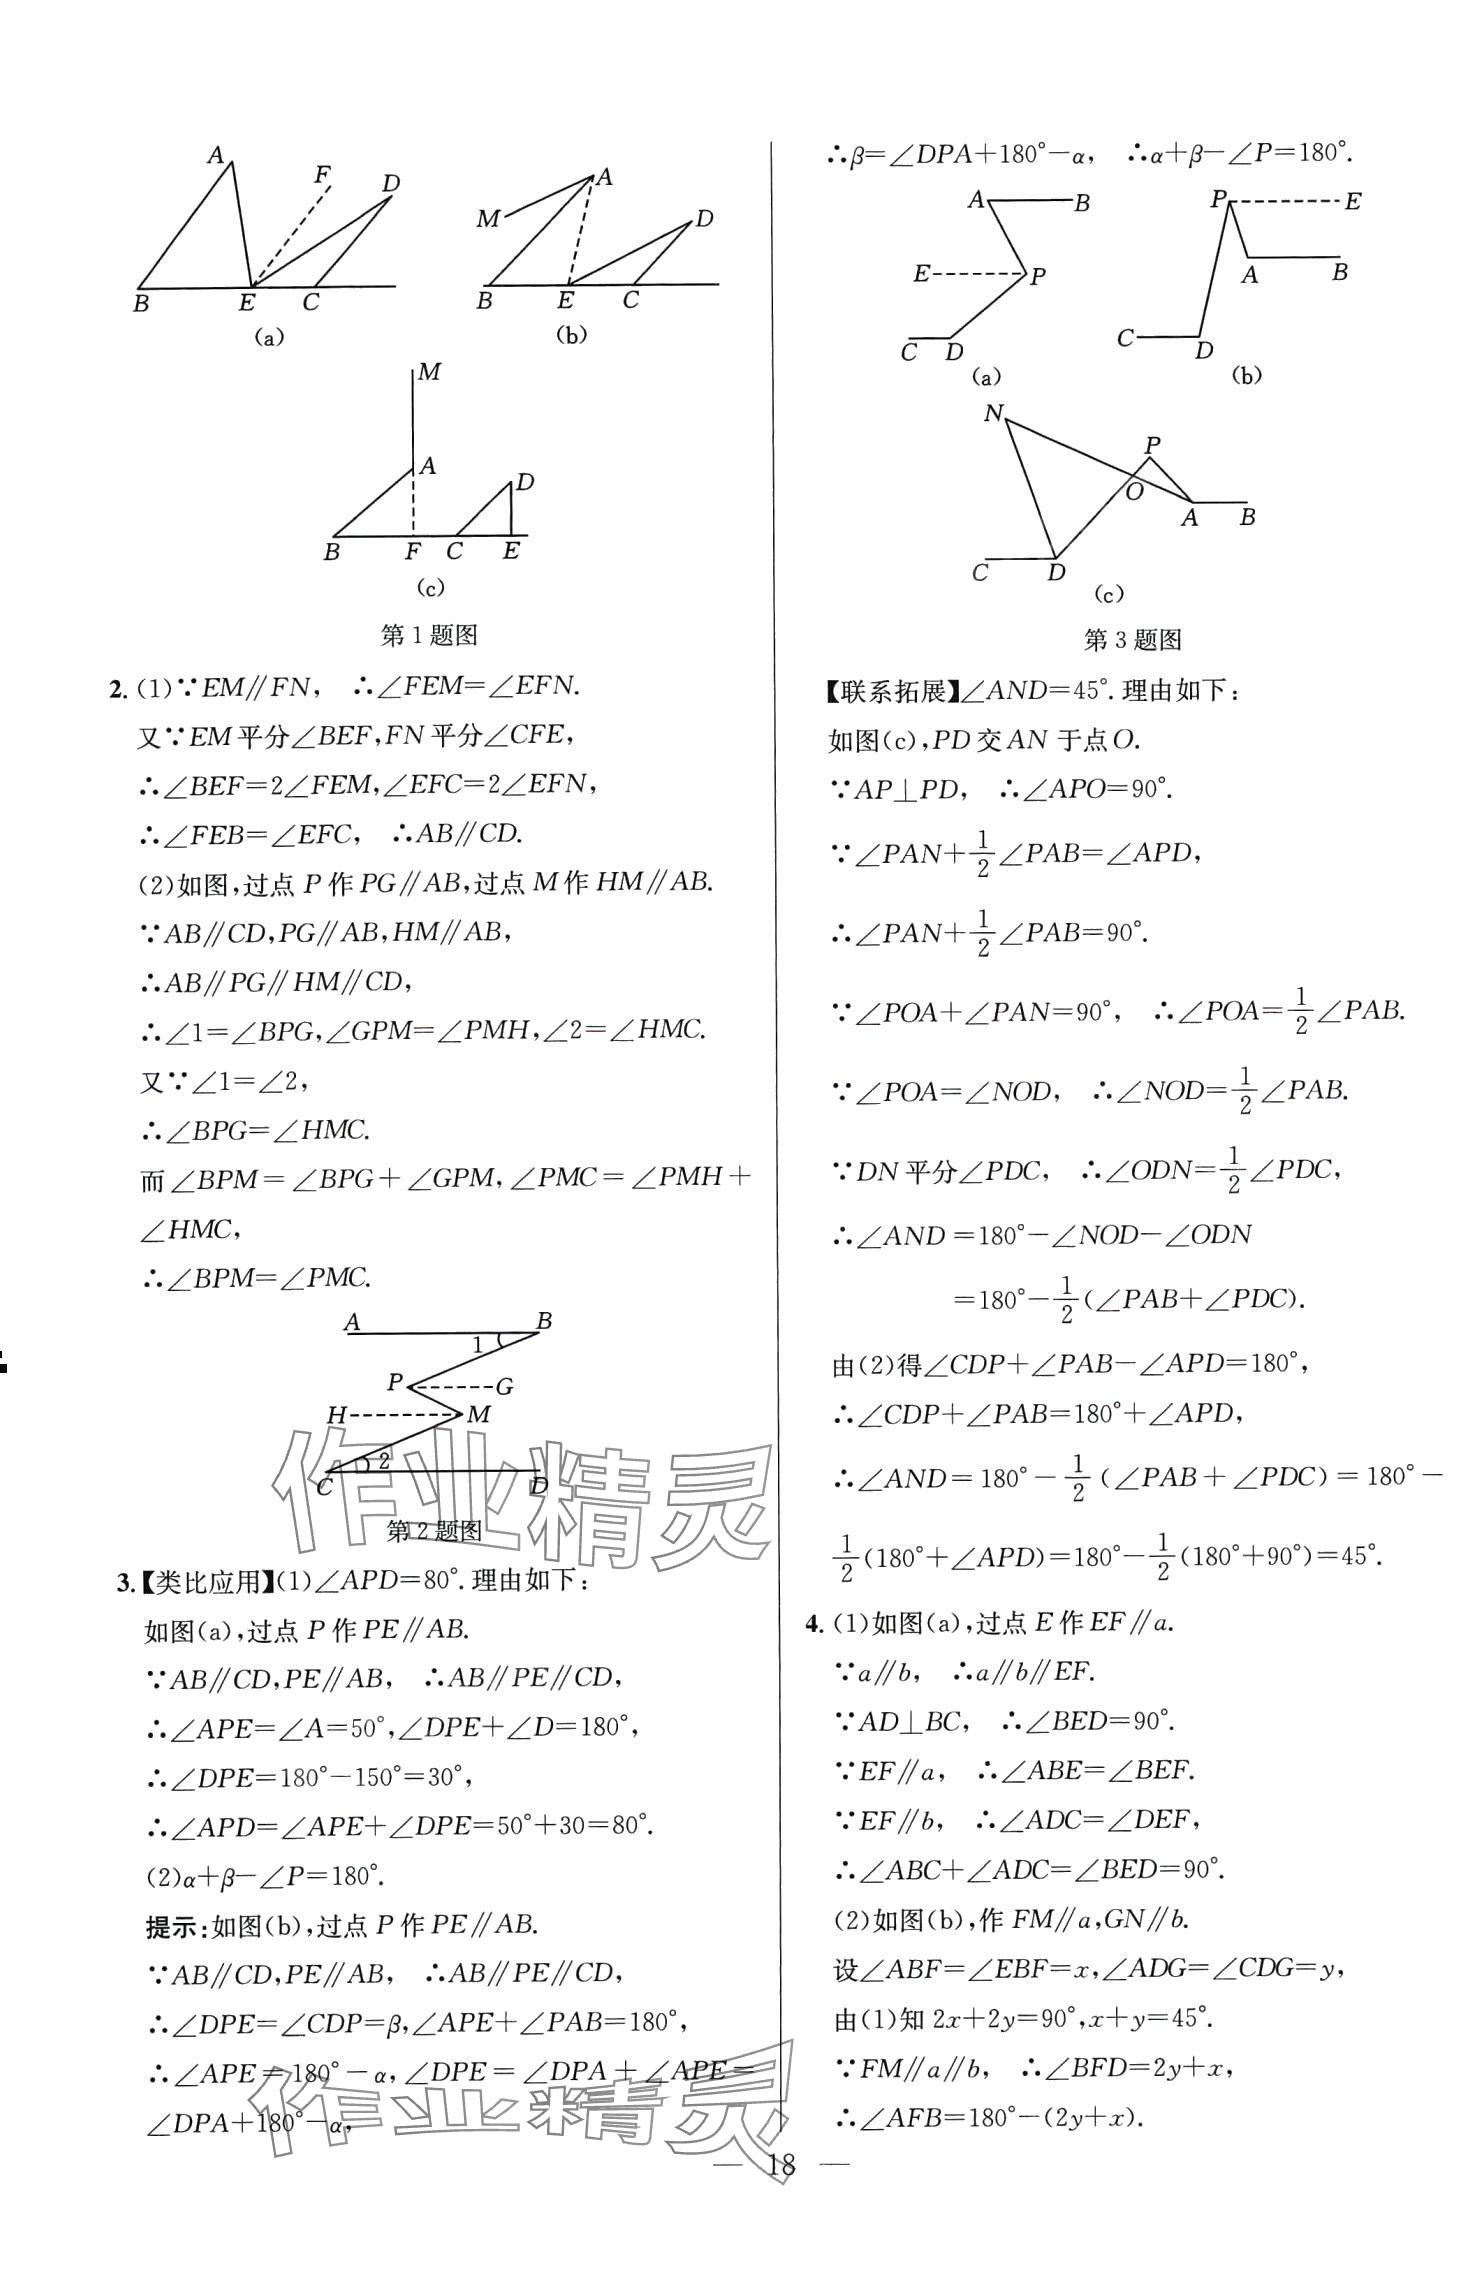 A
F
D
B
E
C
(a)
A
M
D
B
E
C
(b)
M
A
D
B
F
C
E
(c)
第1题图
2.(1)∵EM∥FN, ∴∠FEM=∠EFN.
又∵EM平分∠BEF,FN平分∠CFE,
∴∠BEF=2∠FEM,∠EFC=2∠EFN,
∴∠FEB=∠EFC, ∴AB∥CD.
(2)如图,过点P作PG∥AB,过点M作HM∥AB.
∵AB∥CD,PG∥AB,HM∥AB,
∴AB∥PG∥HM∥CD,
∴∠1=∠BPG,∠GPM=∠PMH,∠2=∠HMC.
又∵∠1=∠2,
∴∠BPG=∠HMC.
而∠BPM=∠BPG+∠GPM,∠PMC=∠PMH+
∠HMC,
∴∠BPM=∠PMC.
A
B
1
P
G
H
M
2
C
D
第2题图
3.【类比应用】(1)∠APD=80°.理由如下:
如图(a),过点P作PE∥AB.
∵AB∥CD,PE∥AB, ∴AB∥PE∥CD,
∴∠APE=∠A=50°,∠DPE+∠D=180°,
∴∠DPE=180°-150°=30°,
∴∠APD=∠APE+∠DPE=50°+30=80°.
(2)α+β-∠P=180°.
提示:如图(b),过点P作PE∥AB.
∵AB∥CD,PE∥AB, ∴AB∥PE∥CD,
∴∠DPE=∠CDP=β,∠APE+∠PAB=180°,
∴∠APE=180°-α,∠DPE=∠DPA+∠APE=
∠DPA+180°-α,
∴β=∠DPA+180°-α, ∴α+β-∠P=180°.
A
B
E
P
C
D
(a)
P
E
A
B
C
D
(b)
N
P
O
A
B
C
D
(c)
第3题图
【联系拓展】∠AND=45°.理由如下:
如图(c),PD交AN于点O.
∵AP⊥PD, ∴∠APO=90°.
∵∠PAN+1/2∠PAB=∠APD,
∴∠PAN+1/2∠PAB=90°.
∵∠POA+∠PAN=90°, ∴∠POA=1/2∠PAB.
∵∠POA=∠NOD, ∴∠NOD=1/2∠PAB.
∵DN平分∠PDC, ∴∠ODN=1/2∠PDC,
∴∠AND=180°-∠NOD-∠ODN
=180°-1/2(∠PAB+∠PDC).
由(2)得∠CDP+∠PAB-∠APD=180°,
∴∠CDP+∠PAB=180°+∠APD,
∴∠AND=180°-1/2(∠PAB+∠PDC)=180°-
1/2(180°+∠APD)=180°-1/2(180°+90°)=45°.
4.(1)如图(a),过点E作EF∥a.
∵a∥b, ∴a∥b∥EF.
∵AD⊥BC, ∴∠BED=90°.
∵EF∥a, ∴∠ABE=∠BEF.
∵EF∥b, ∴∠ADC=∠DEF,
∴∠ABC+∠ADC=∠BED=90°.
(2)如图(b),作FM∥a,GN∥b.
设∠ABF=∠EBF=x,∠ADG=∠CDG=y,
由(1)知2x+2y=90°,x+y=45°.
∵FM∥a∥b, ∴∠BFD=2y+x,
∴∠AFB=180°-(2y+x).
— 18 —
作业精灵
作业精灵